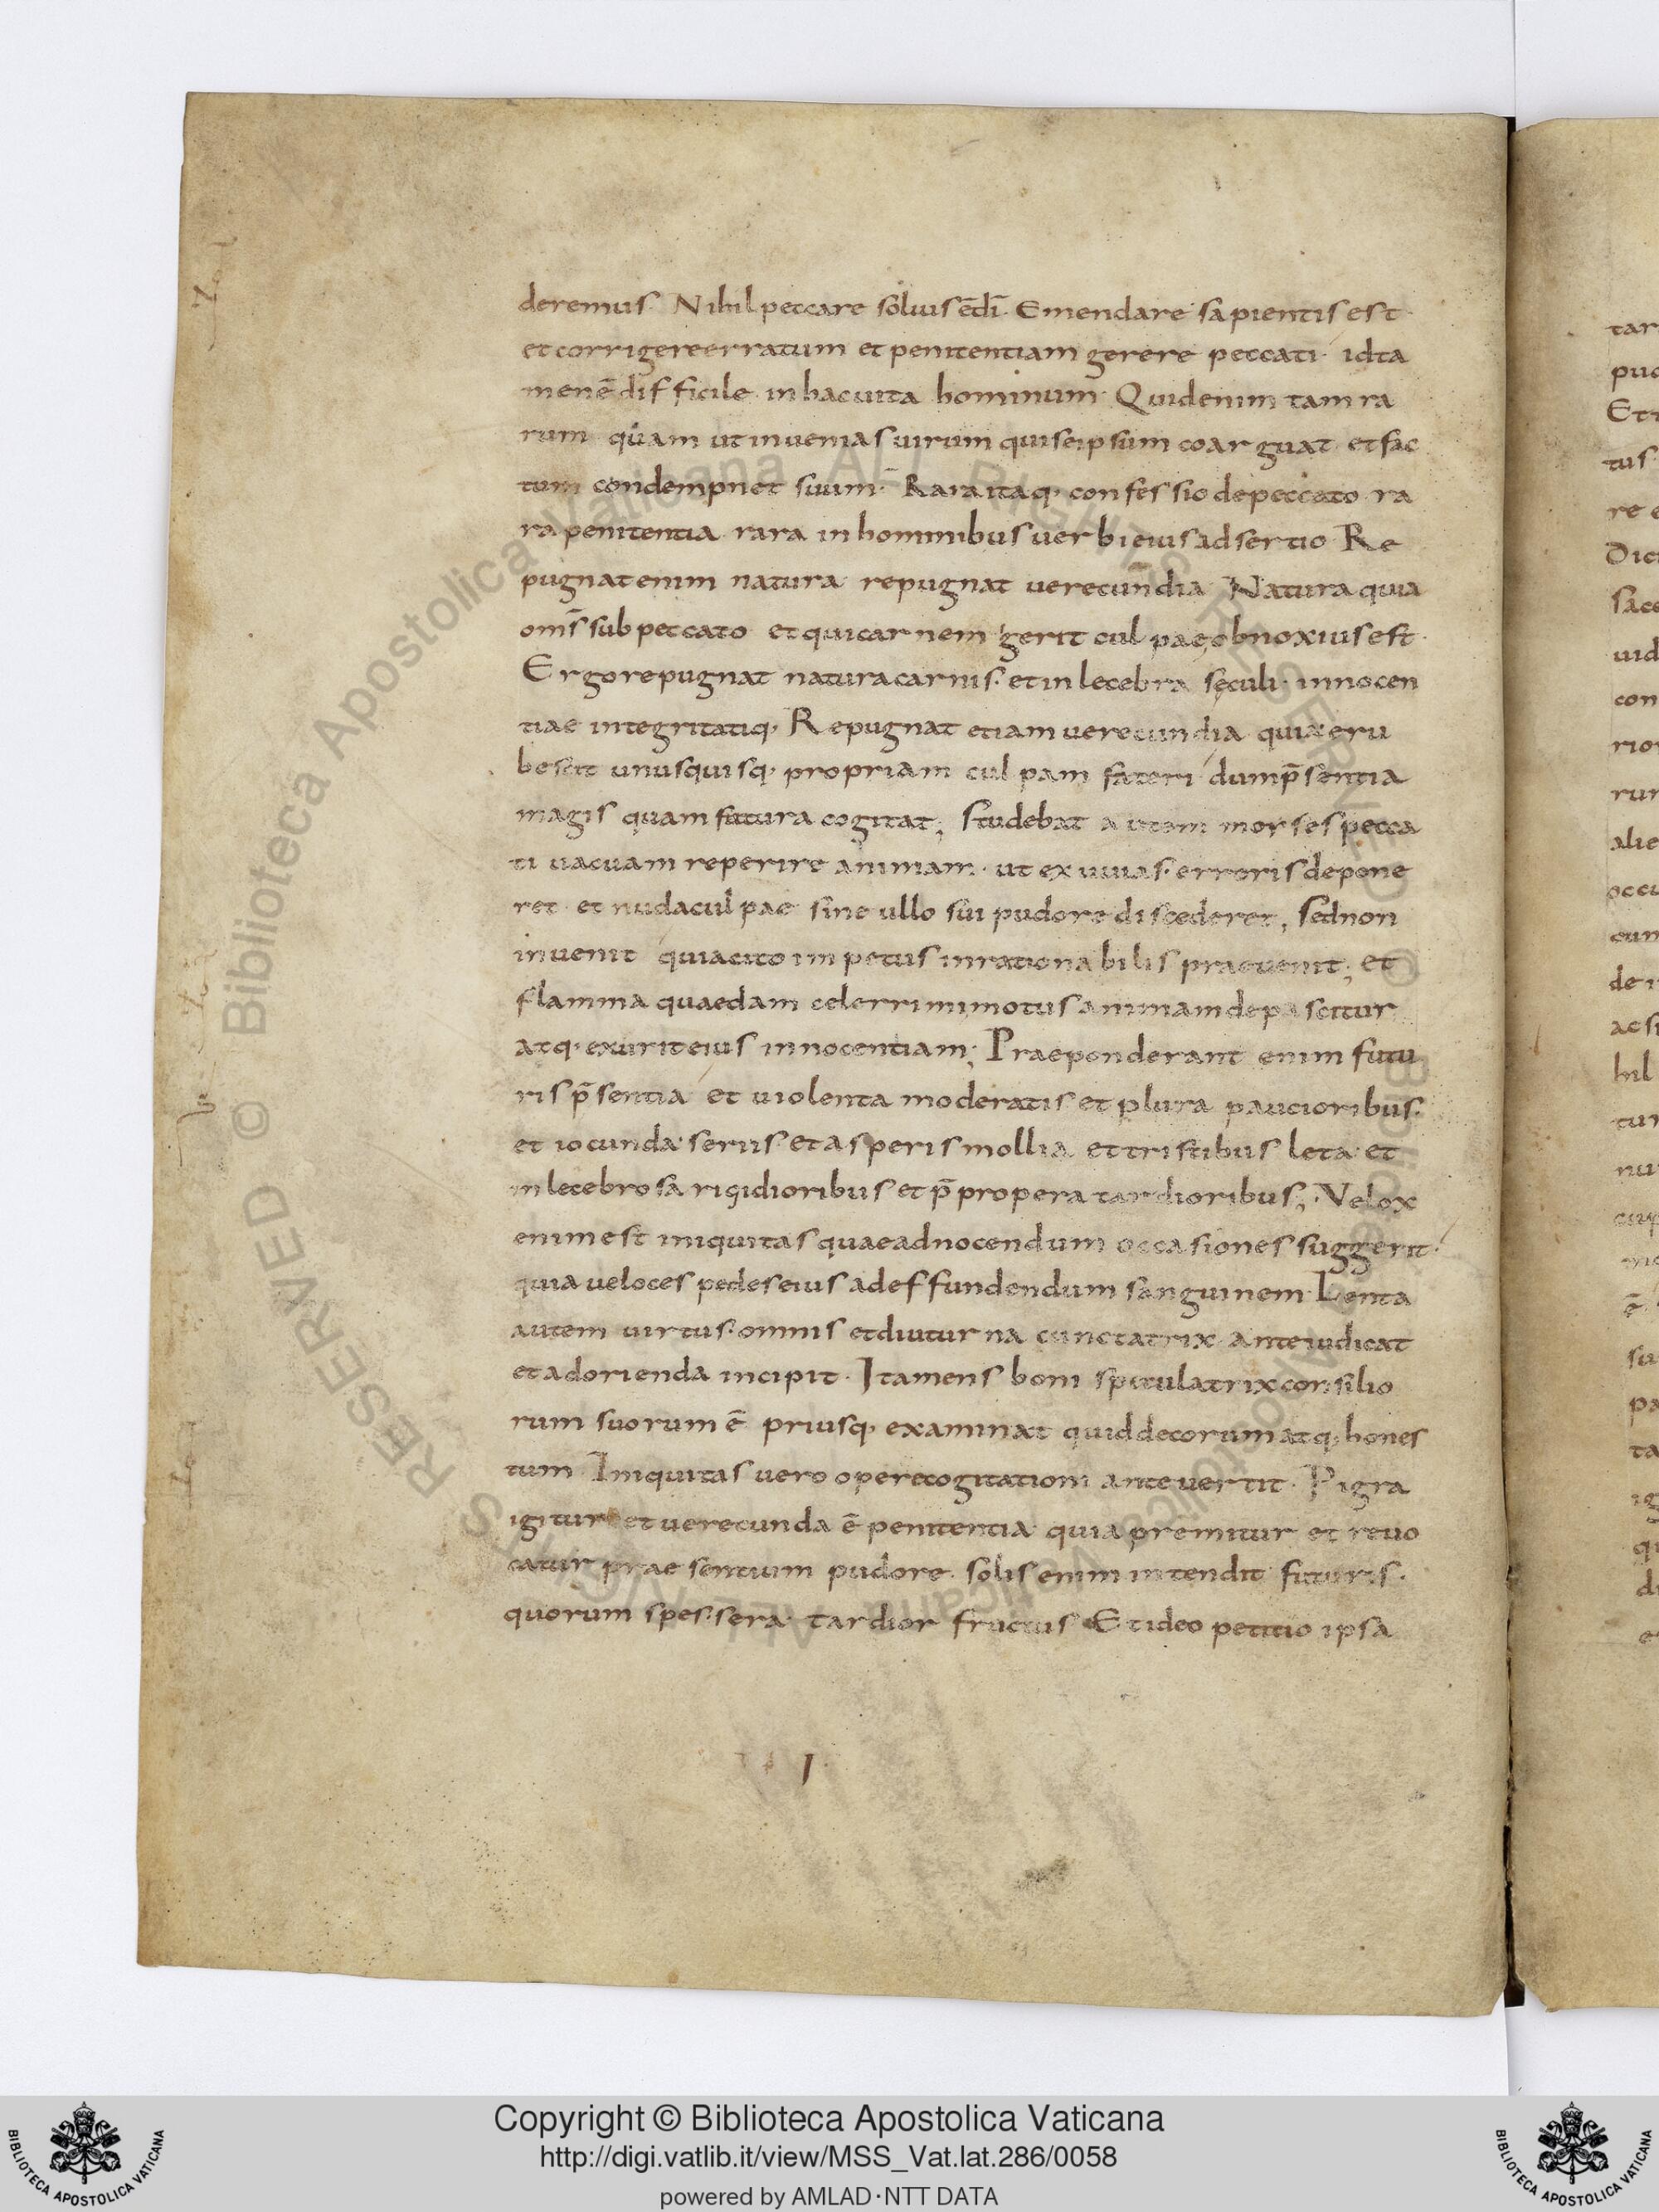 deremus. Nihil peccare solius ē dī. Emendare sapientis est
et corrigere erratum et penitentiam gerere peccati. id ta
men ē difficile in hac uita hominum. Quid enim tam ra
rum quam ut inuenias uirum qui se ipsum coarguat et fac
tum condempnet suum. Rara itaq; confessio de peccato ra
ra penitentia rara in hominibus uerbi eius adsertio Re
pugnat enim natura repugnat uerecundia Natura quia
om̄s sub peccato et qui carnem gerit culpae obnoxius est.
Ergo repugnat natura carnis. et inlecebra sęculi. innocen
tiae integritatiq; Repugnat etiam uerecundia quia eru
bescit unusquisq; propriam culpam fateri dum p̄sentia
magis quam futura cogitat; Studebat autem morses pecca
ti uacuam reperire animam. ut exuuias erroris depone
ret et nuda culpae sine ullo sui pudore discederet, Sed non
inuenit quia cito impetus inrationabilis praeuenit; et
flamma quaedam celerrimi motus animam depascitur
atq; exurit eius innocentiam; Praeponderant enim futu
ris p̄sentia et uiolenta moderatis et plura paucioribus.
et iocunda seriis et asperis mollia et tristibus leta et
inlecebrosa rigidioribus et p̄propera tardioribus; Velox
enim est iniquitas quae ad nocendum occasiones suggerit.
quia ueloces pedes eius ad effundendum sanguinem Lenta
autem uirtus omnis et diuturna cunctatrix ante iudicat
et adorienda incipit. Ita mens boni specula trix consilio
rum suorum ē priusq; examinat quid decorum atq; hones
tum Iniquitas uero opere cogitationi anteuertit. Pigra
igitur et uerecunda ē penitentia quia premitur et reuo
catur praesentium pudore. solis enim intendit futuris.
quorum spes sera. tardior fructus Et ideo petitio ipsa
I
Copyright © Biblioteca Apostolica Vaticana
http://digi.vatlib.it/view/MSS_Vat.lat.286/0058
powered by AMLAD·NTT DATA
BIBLIOTECA APOSTOLICA VATICANA
BIBLIOTECA APOSTOLICA VATICANA